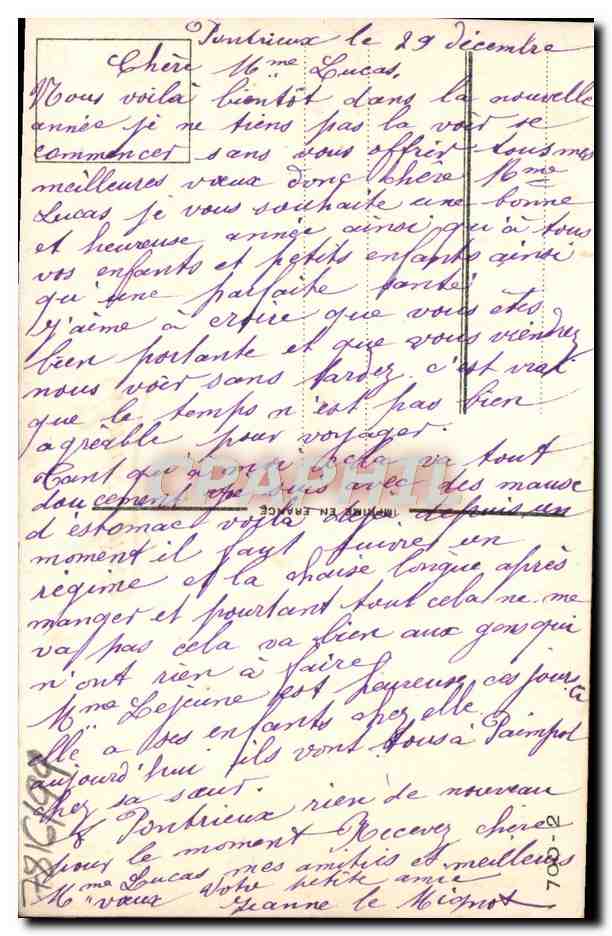 Pontrieux le 29 décembre
Chère Mme Lucas,
Nous voilà bientôt dans la nouvelle
année je ne tiens pas la voir se
commencer sans vous offrir tous mes
meilleures vœux donc chère Mme
Lucas je vous souhaite une bonne
et heureuse année ainsi qu'à tous
vos enfants et petits enfants ainsi
qu'une parfaite santé.
J'aime à croire que vous êtes
bien portante et que vous viendrez
nous voir sans tardez. c'est vrai
que le temps n'est pas bien
agréable pour voyager.
Tant qu'à moi cela va tout
doucement je suis avec des maux
d'estomac voilà déjà depuis un
moment il faut suivre un
régime et la chaise longue après
manger et pourtant tout cela ne me
va pas cela va bien aux gens qui
n'ont rien à faire
Mme Lejeune est heureuse ces jours-ci
elle a ses enfants chez elle
aujourd'hui ils vont tous à Paimpol
chez sa sœur.
à Pontrieux rien de nouveau
pour le moment Recevez chère
Mme Lucas mes amitiés et meilleurs
vœux Votre petite amie
Jeanne le Mignot
IMPRIMÉ EN FRANCE
CPAPHIL
700-2
7816199